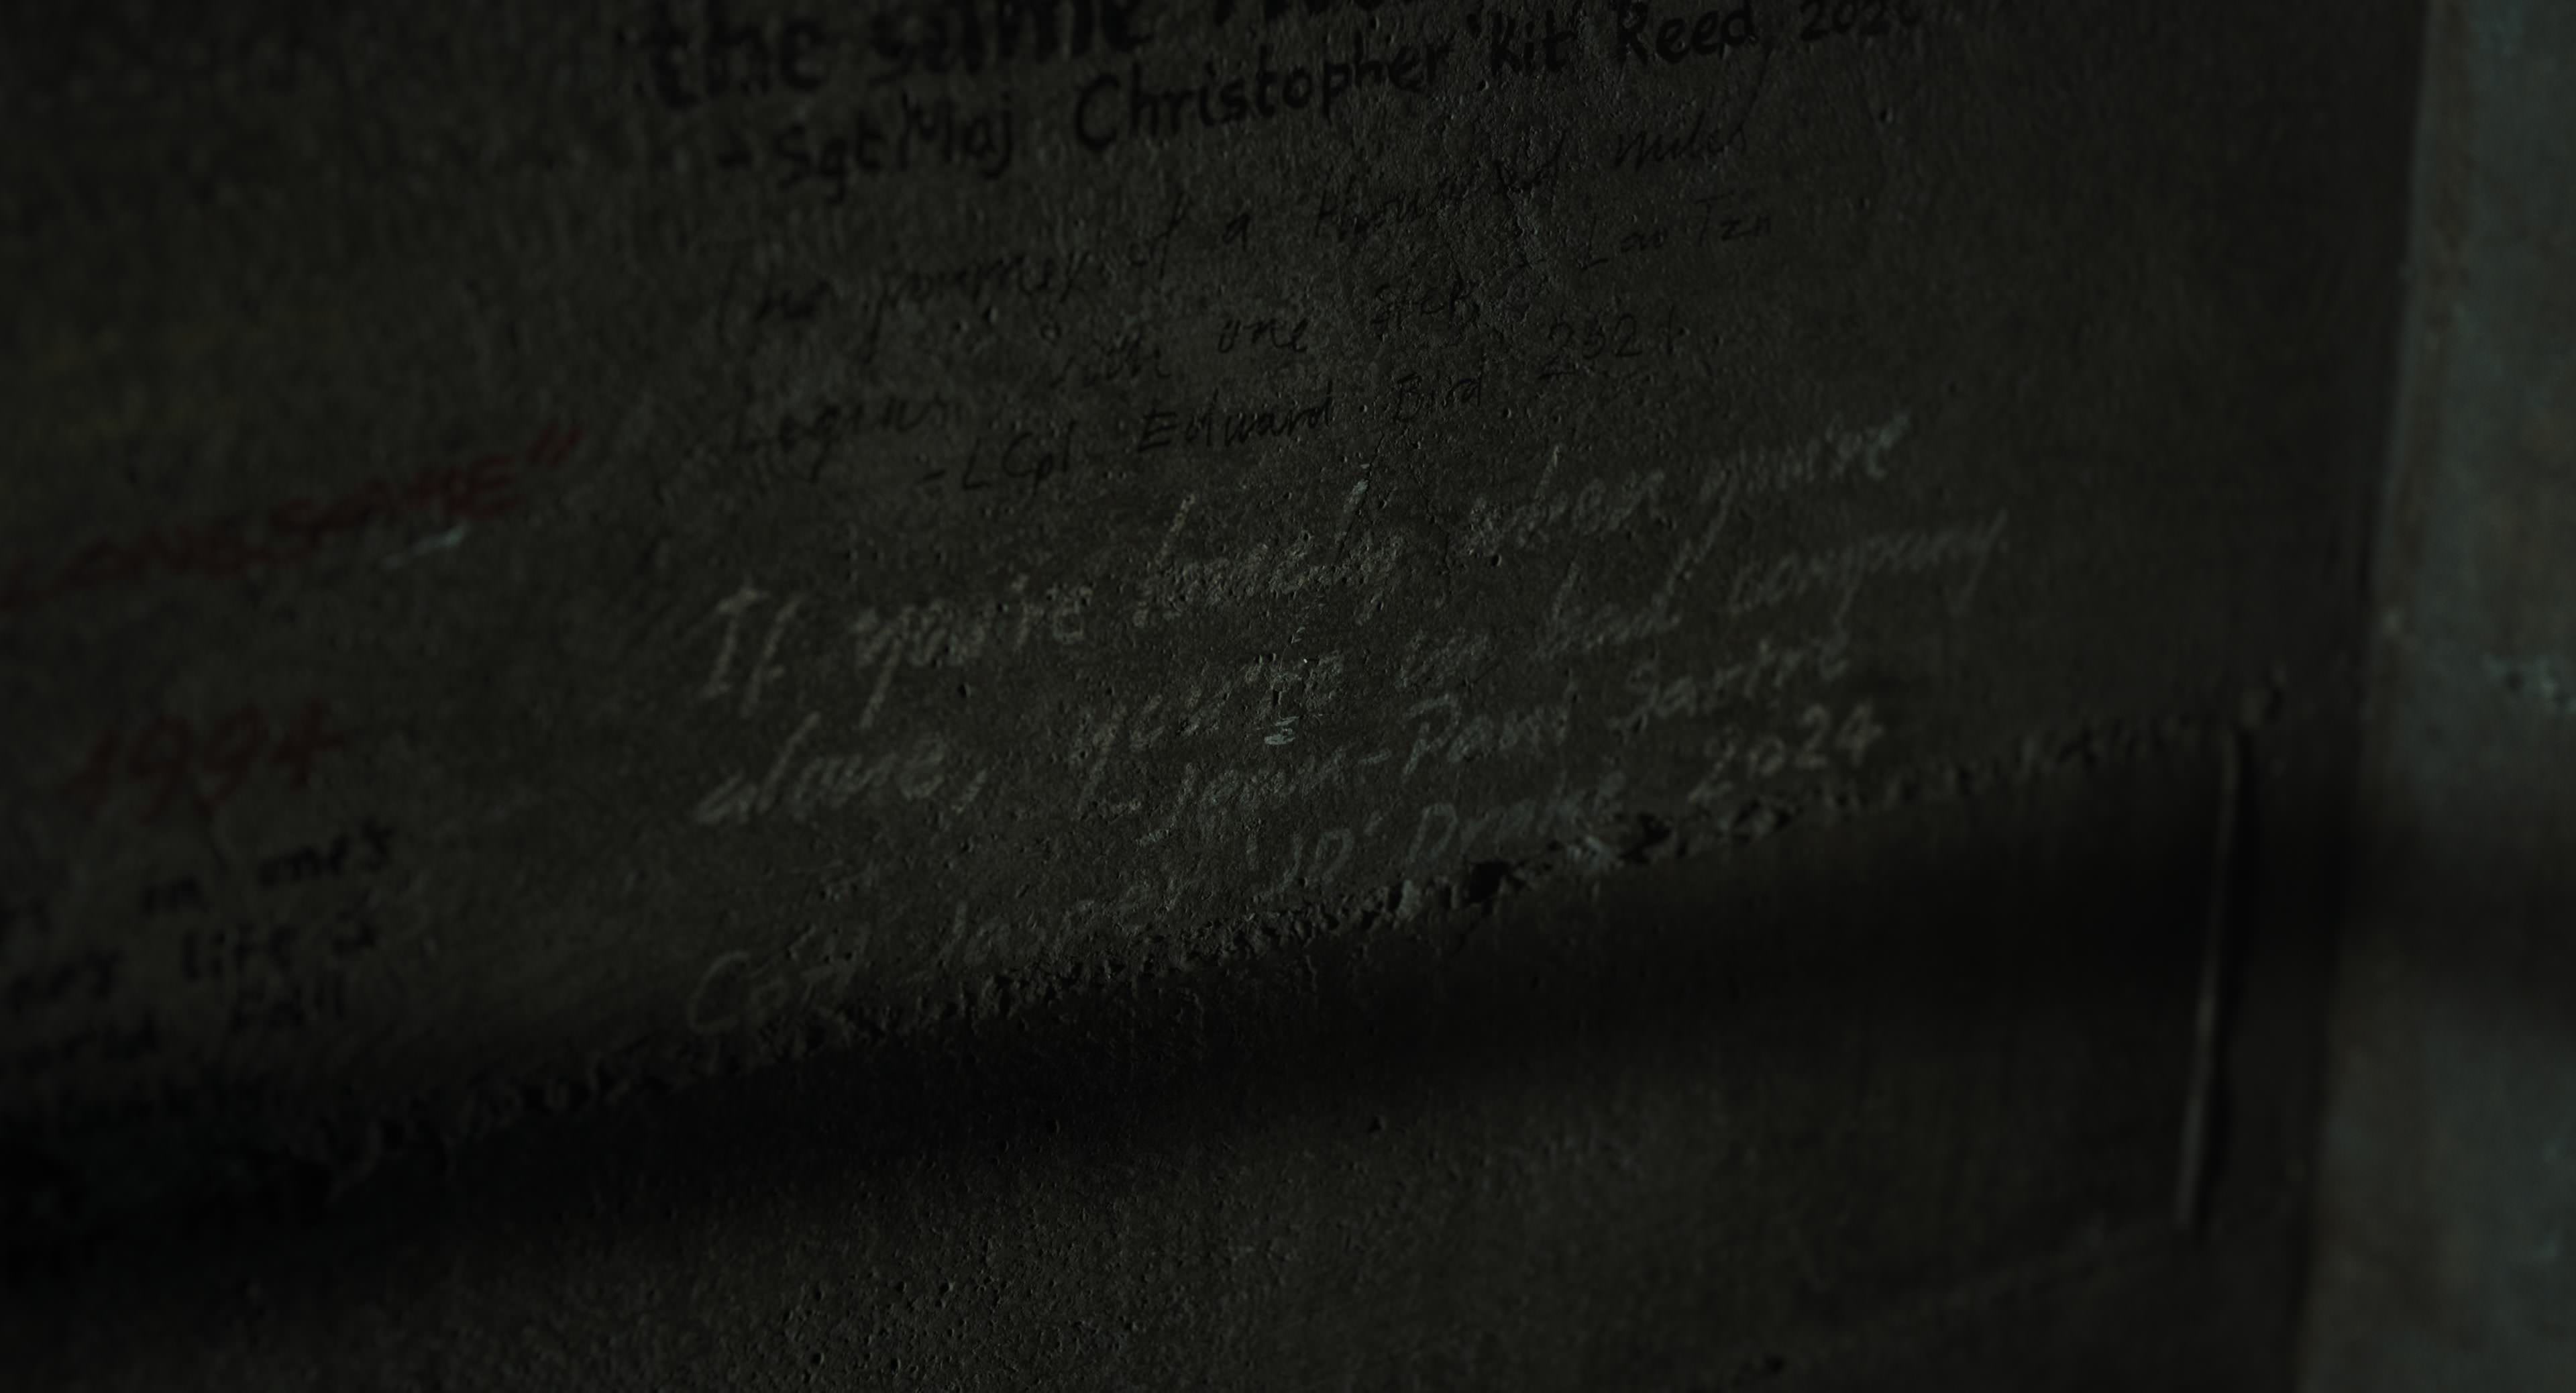 the same
- SgtMaj Christopher 'Kit' Reed, 202
The journey of a thousand miles
begins with one step - Lao Tzu
- LCpl Edward Bird 2024
If you're lonely when you're
alone, you're in bad company
- Jean-Paul Sartre
Cpt James 'JD' Drake 2024
LONESOME"
1994
in one's
life is
fall